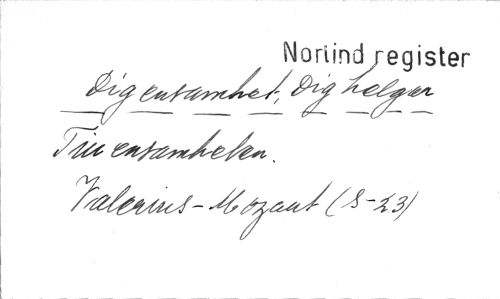 Norlind register
Dig ensamhet, Dig helgar
Till ensamheten.
Valerius - Mozart (S-23)